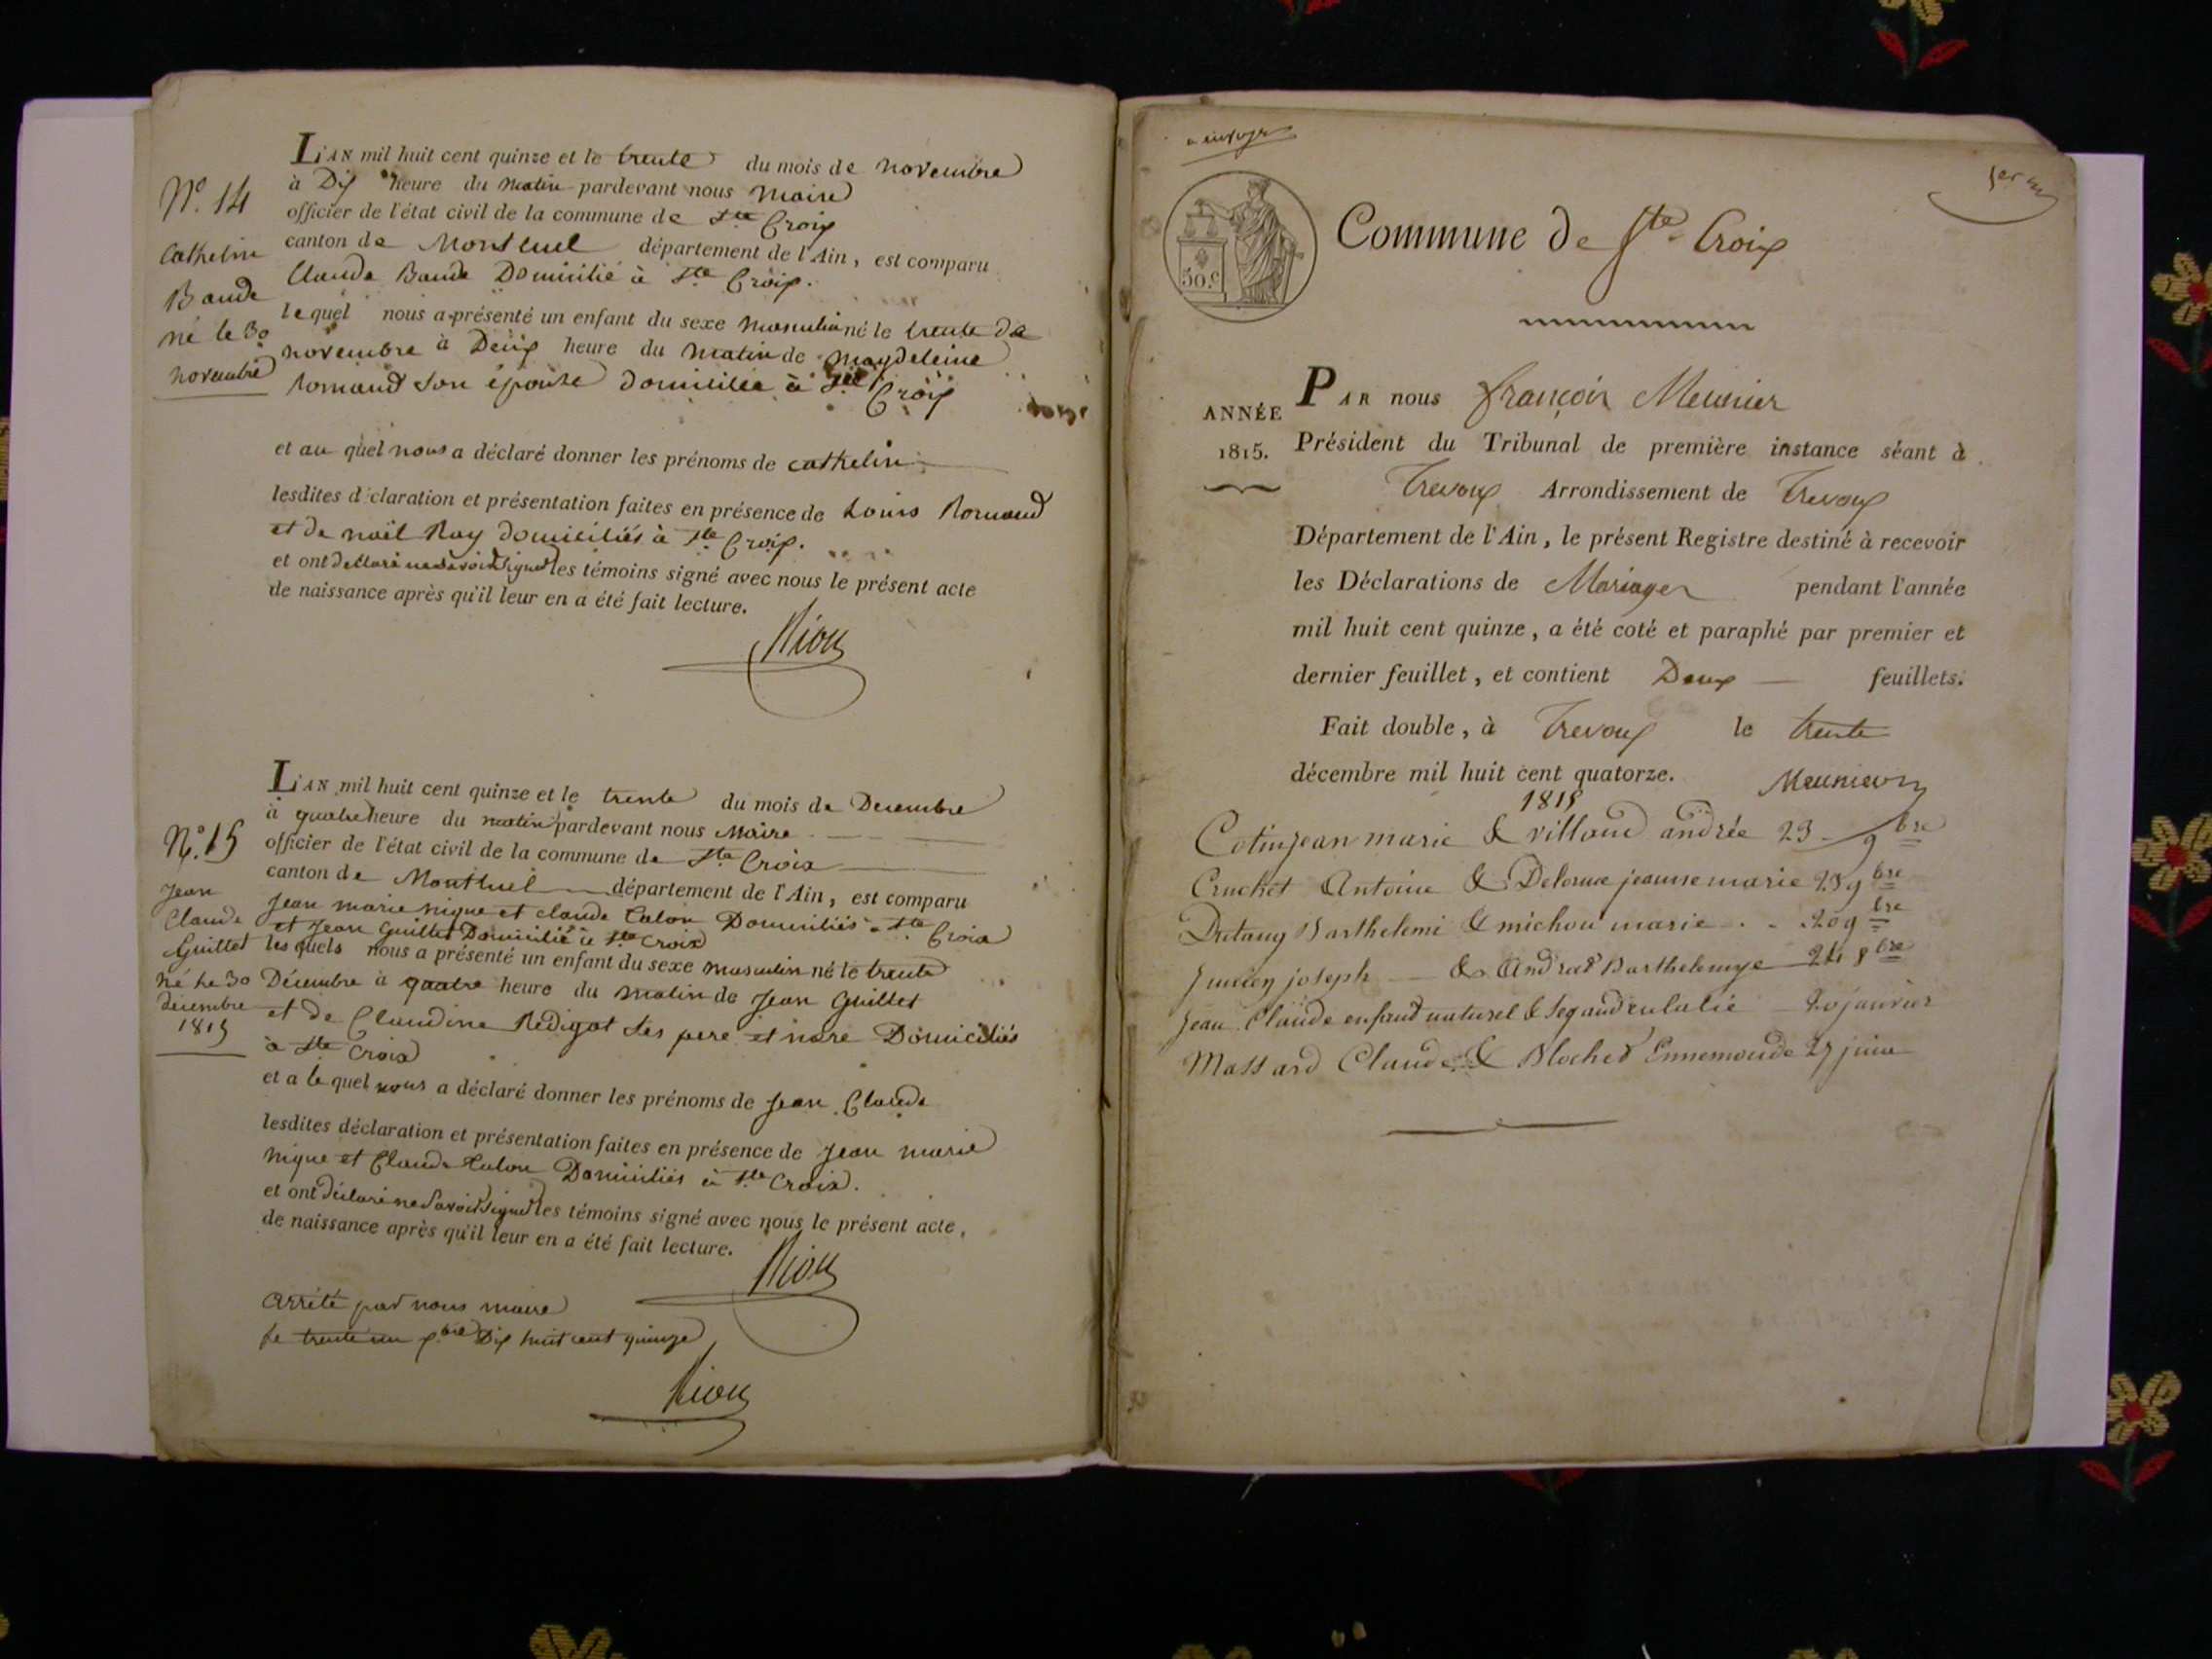 L'AN mil huit cent quinze et le trente du mois de novembre
à Dix heure du matin pardevant nous maire
officier de l'état civil de la commune de Ste Croix
canton de Montluel département de l'Ain, est comparu
Claude Baude Domicilié à Ste Croix.
lequel nous a présenté un enfant du sexe masculin né le trente de
novembre à Deux heure du matin de magdeleine
Romand son épouse domiciliée à Ste Croix
et au quel nous a déclaré donner les prénoms de cathelin
lesdites déclaration et présentation faites en présence de Louis Romand
et de noël Ray domiciliés à Ste Croix.
et ont déclaré ne savoir signer les témoins signé avec nous le présent acte
de naissance après qu'il leur en a été fait lecture.
Nº. 14
Cathelin
Baude
né le 30
novembre
L'AN mil huit cent quinze et le trente du mois de Decembre
à quatre heure du matin pardevant nous Maire
officier de l'état civil de la commune de Ste Croix
canton de Montluel département de l'Ain, est comparu
Jean marie nique et claude Talon Domiciliés a Ste Croix
et Jean Guillet Domicilié à Ste Croix
les quels nous a présenté un enfant du sexe masculin né le trente
Décembre à quatre heure du matin de Jean Guillet
et de Claudine Redigot ses pere et mere Domiciliés
à Ste Croix
et a le quel nous a déclaré donner les prénoms de Jean Claude
lesdites déclaration et présentation faites en présence de Jean marie
nique et Claude Talon Domiciliés à Ste Croix.
et ont déclaré ne Savoir signer les témoins signé avec nous le présent acte,
de naissance après qu'il leur en a été fait lecture.
Nº. 15
Jean
Claude
Guillet
né le 30
décembre
1815
arrêté par nous maire
le trente un xbre Dix huit cent quinze
Commune de Ste Croix
50.c
ANNÉE
1815.
PAR nous françois Meunier
Président du Tribunal de première instance séant à
Trevoux Arrondissement de Trevoux
Département de l'Ain, le présent Registre destiné à recevoir
les Déclarations de Mariages pendant l'année
mil huit cent quinze, a été coté et paraphé par premier et
dernier feuillet, et contient Deux feuillets.
Fait double, à Trevoux le trente
décembre mil huit cent quatorze.
Meunier
1815
Cotin jean marie & villand andrée 23 9bre
Cruchet Antoine & Delorme jeanne marie 23 9bre
Barthelemi & michon marie . . 20 9bre
joseph & Andrat Barthelemye 24 8bre
Jean Claude enfant naturel & Segaud eulalie 20 janvier
Massard Claude & Blochet Ennemonde 27 juin